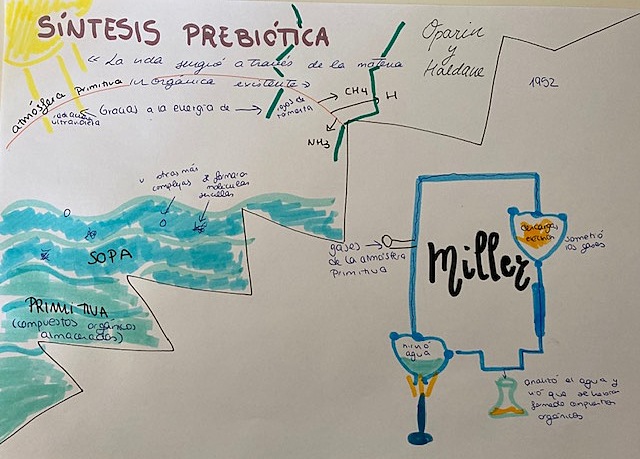 SÍNTESIS PREBIÓTICA
"La vida surgió a través de la materia
inorgánica existente"
atmósfera primitiva
Gracias a la energía de
rayos
ultravioleta
rayos de
tormenta
CH4
H
NH3
Oparin
y
Haldane
1952
otras más
complejas
se formaron
moléculas
sencillas
SOPA
PRIMITIVA
(compuestos orgánicos
almacenados)
gases
de la atmósfera
primitiva
Miller
descargas
sometió
los gases
hirvió
agua
analizó el agua y
vió que se habían
formado compuestos
orgánicos